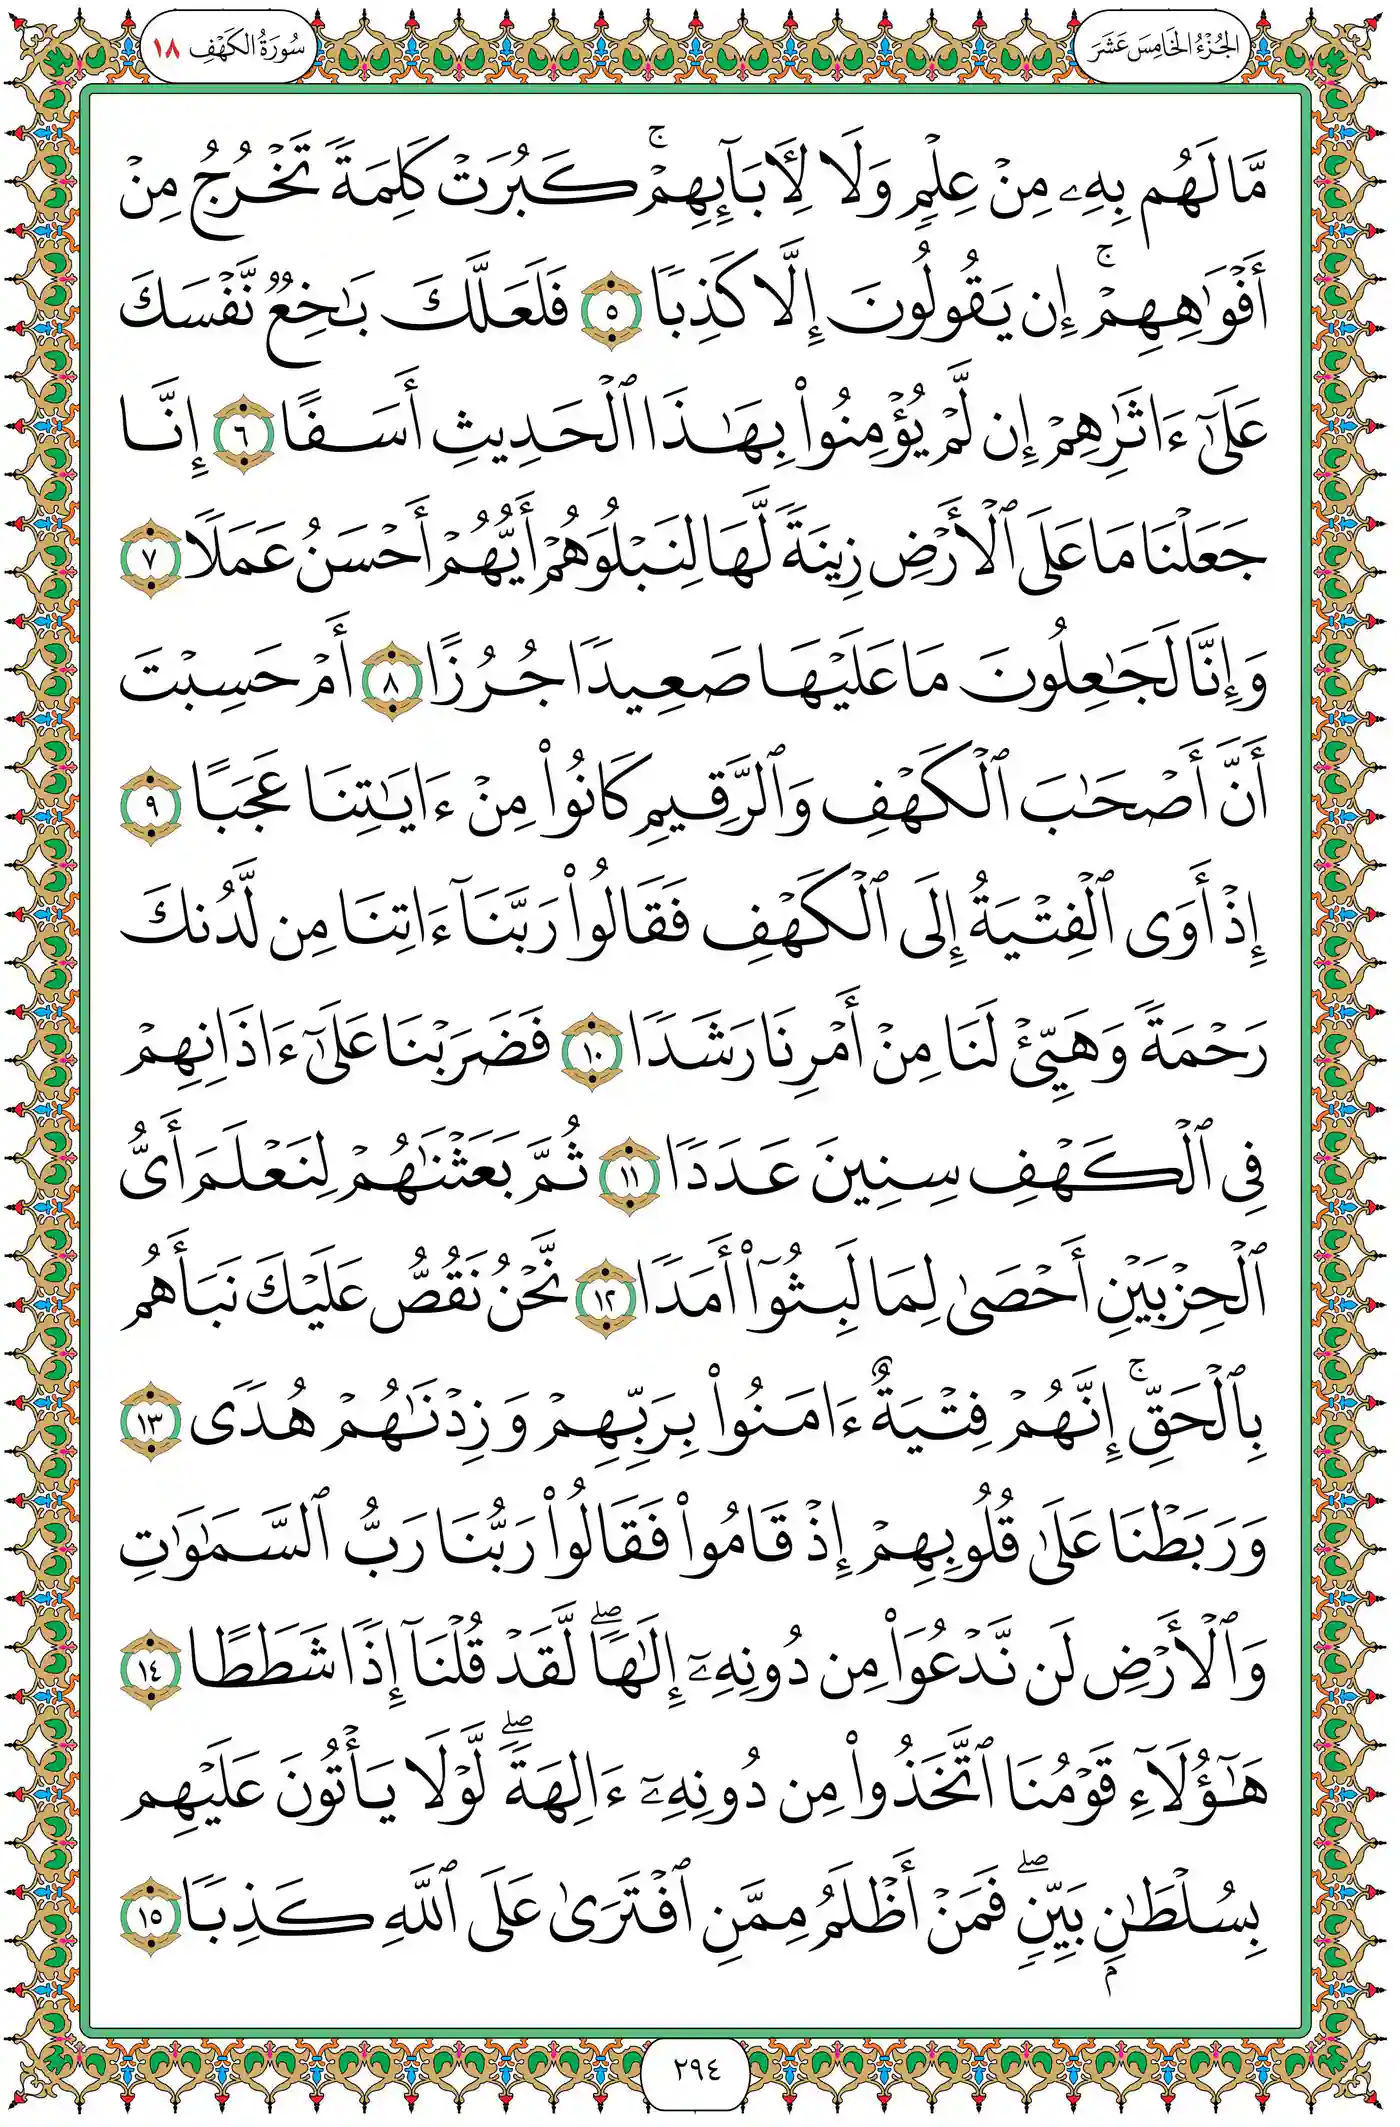 الجُزْءُ الخَامِسَ عَشَرَ
سُورَةُ الكَهْفِ ١٨
مَّا لَهُم بِهِۦ مِنْ عِلْمٍ وَلَا لِأٓبَآئِهِمْۚ كَبُرَتْ كَلِمَةً تَخْرُجُ مِنْ
أَفْوَٰهِهِمْۚ إِن يَقُولُونَ إِلَّا كَذِبًا ٥ فَلَعَلَّكَ بَٰخِعٌ نَّفْسَكَ
عَلَىٰٓ ءَاثَٰرِهِمْ إِن لَّمْ يُؤْمِنُوا۟ بِهَٰذَا ٱلْحَدِيثِ أَسَفًا ٦ إِنَّا
جَعَلْنَا مَا عَلَى ٱلْأَرْضِ زِينَةً لَّهَا لِنَبْلُوَهُمْ أَيُّهُمْ أَحْسَنُ عَمَلًا ٧
وَإِنَّا لَجَٰعِلُونَ مَا عَلَيْهَا صَعِيدًا جُرُزًا ٨ أَمْ حَسِبْتَ
أَنَّ أَصْحَٰبَ ٱلْكَهْفِ وَٱلرَّقِيمِ كَانُوا۟ مِنْ ءَايَٰتِنَا عَجَبًا ٩
إِذْ أَوَى ٱلْفِتْيَةُ إِلَى ٱلْكَهْفِ فَقَالُوا۟ رَبَّنَآ ءَاتِنَا مِن لَّدُنكَ
رَحْمَةً وَهَيِّئْ لَنَا مِنْ أَمْرِنَا رَشَدًا ١٠ فَضَرَبْنَا عَلَىٰٓ ءَاذَانِهِمْ
فِى ٱلْكَهْفِ سِنِينَ عَدَدًا ١١ ثُمَّ بَعَثْنَٰهُمْ لِنَعْلَمَ أَىُّ
ٱلْحِزْبَيْنِ أَحْصَىٰ لِمَا لَبِثُوٓا۟ أَمَدًا ١٢ نَّحْنُ نَقُصُّ عَلَيْكَ نَبَأَهُم
بِٱلْحَقِّۚ إِنَّهُمْ فِتْيَةٌ ءَامَنُوا۟ بِرَبِّهِمْ وَزِدْنَٰهُمْ هُدًى ١٣
وَرَبَطْنَا عَلَىٰ قُلُوبِهِمْ إِذْ قَامُوا۟ فَقَالُوا۟ رَبُّنَا رَبُّ ٱلسَّمَٰوَٰتِ
وَٱلْأَرْضِ لَن نَّدْعُوَا۟ مِن دُونِهِۦٓ إِلَٰهًاۖ لَّقَدْ قُلْنَآ إِذًا شَطَطًا ١٤
هَٰٓؤُلَآءِ قَوْمُنَا ٱتَّخَذُوا۟ مِن دُونِهِۦٓ ءَالِهَةًۖ لَّوْلَا يَأْتُونَ عَلَيْهِم
بِسُلْطَٰنٍۭ بَيِّنٍۖ فَمَنْ أَظْلَمُ مِمَّنِ ٱفْتَرَىٰ عَلَى ٱللَّهِ كَذِبًا ١٥
٢٩٤